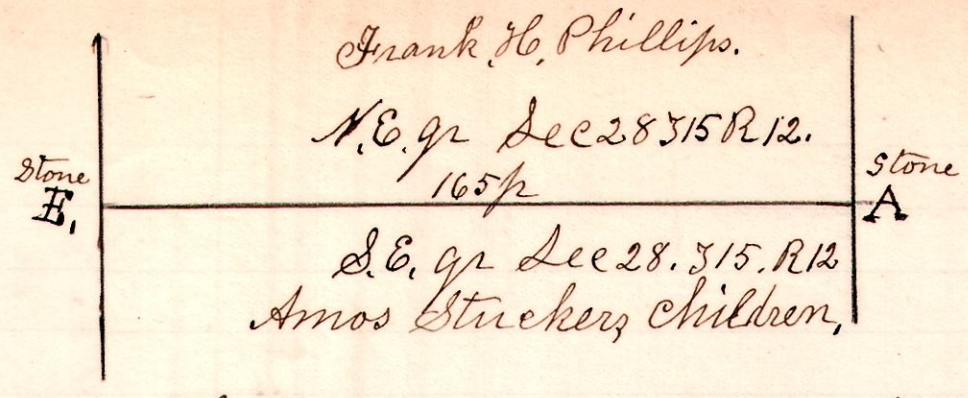 Frank. H. Phillips.
N.E. qr Sec 28 T15 R 12.
Stone
E.
165 p
Stone
A
S.E. qr Sec 28. T15. R12
Amos Stuckers Children,